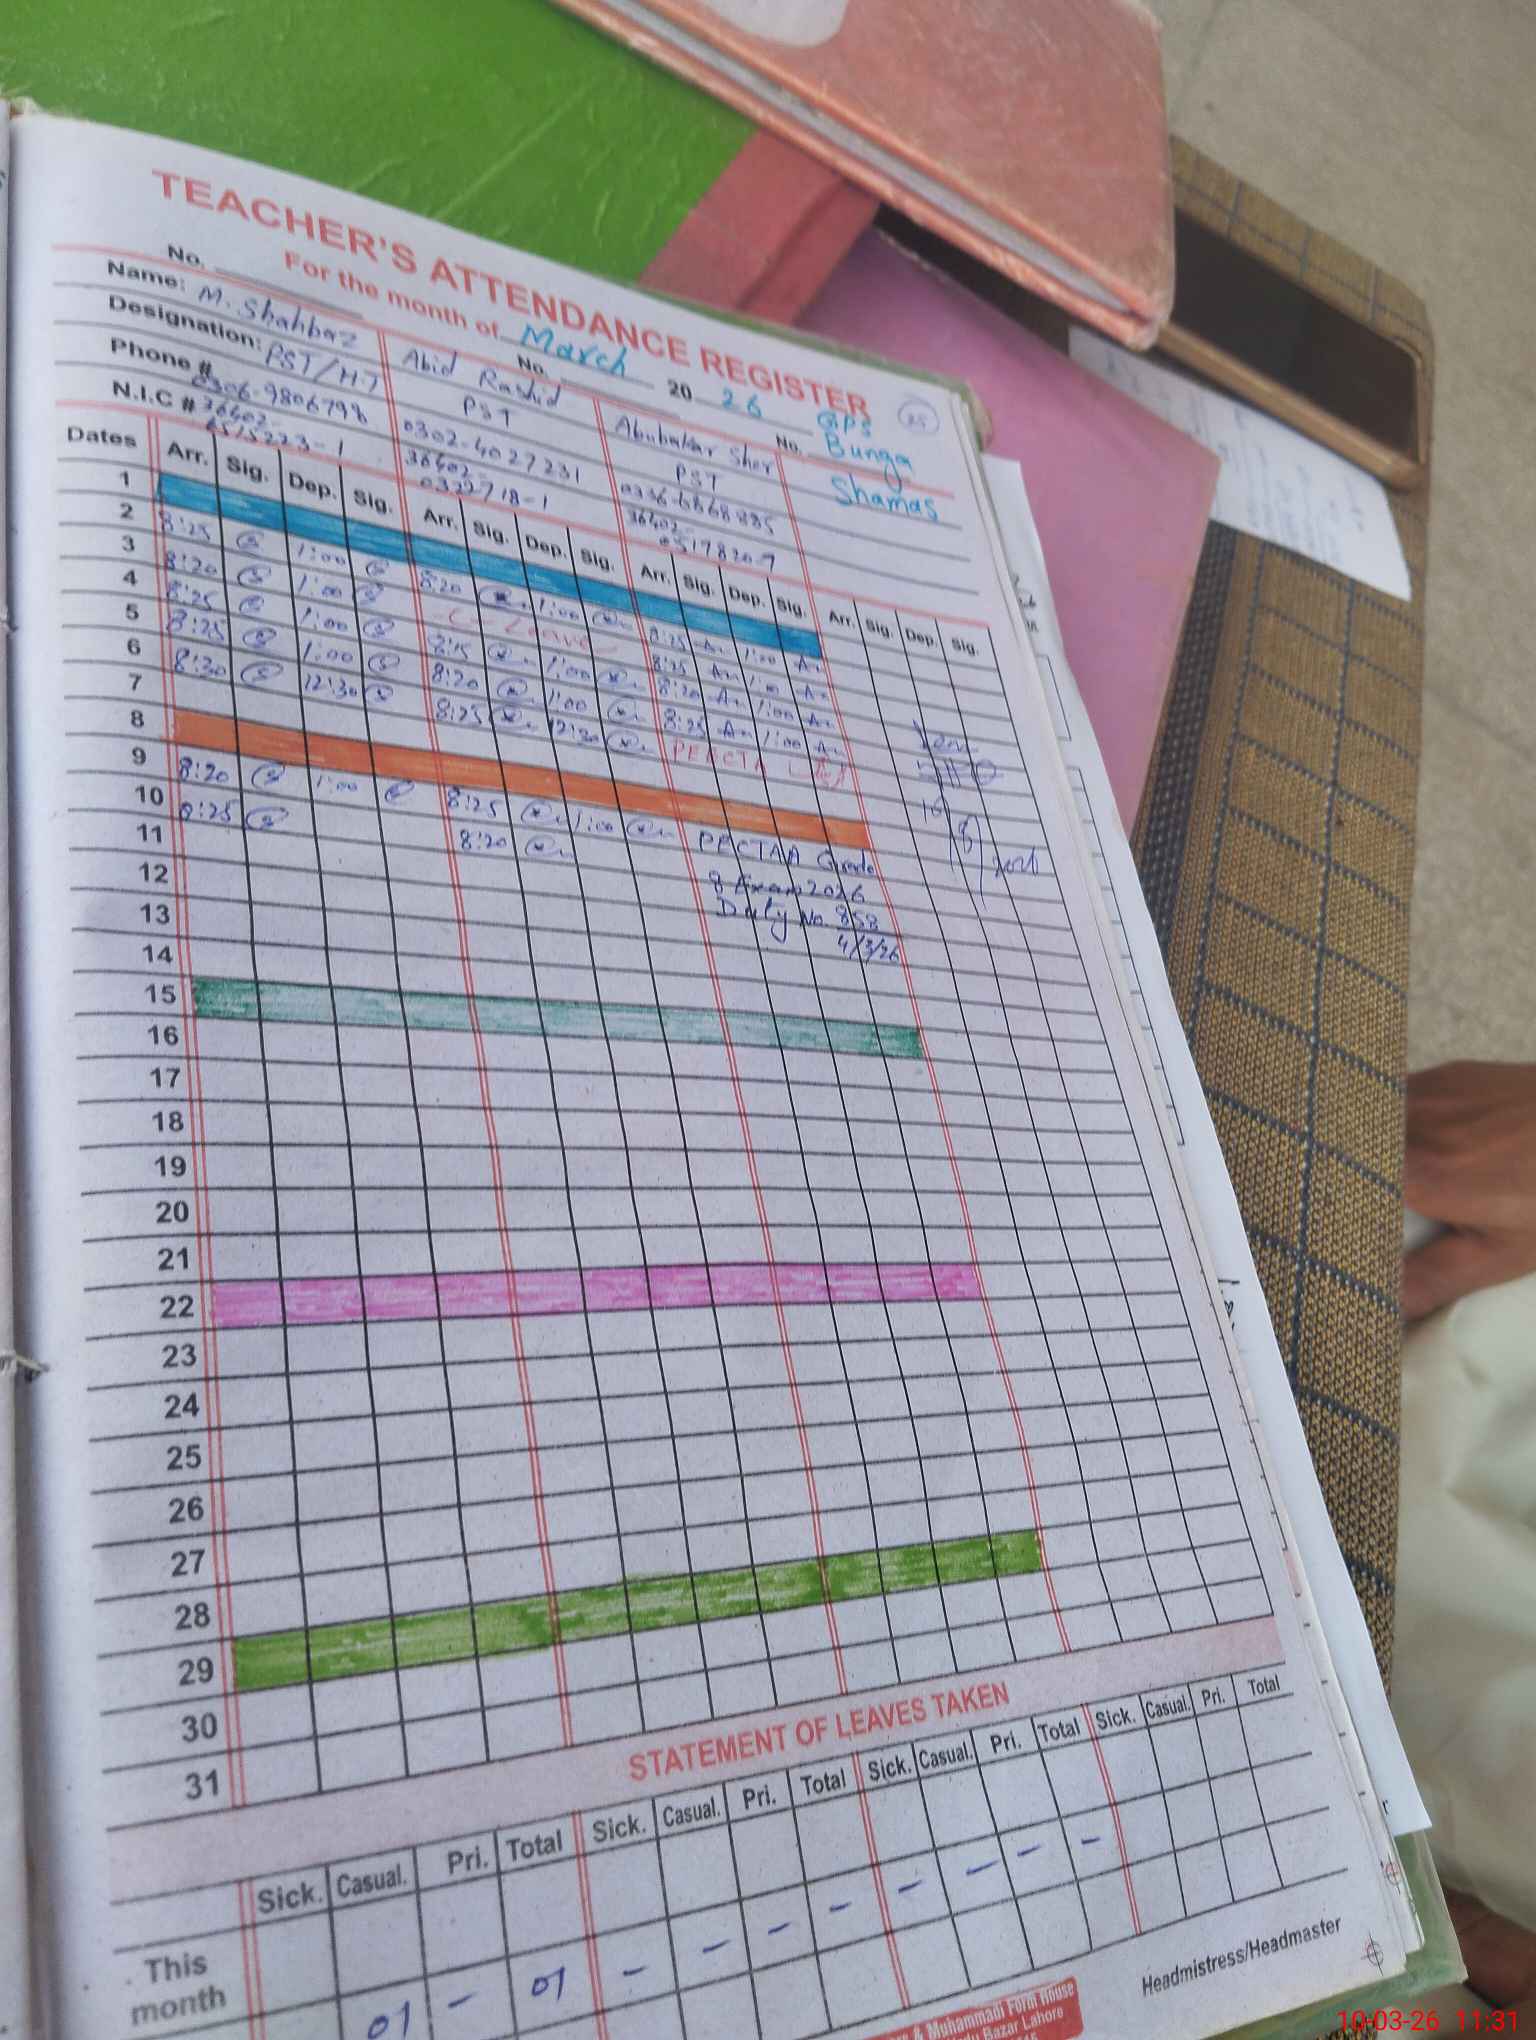 TEACHER'S ATTENDANCE REGISTER
For the month of March 20 26 GPS
25
Bunga
Shamas
No. No. No.
Name: M. Shahbaz Abid Rashid Abubakar Sher
Designation: PST/H.T PST PST
Phone # 0306-9806798 0302-4027231 0336-6868885
N.I.C # 36402- 36402- 36402-
0322718-1
Dates Arr. Sig. Dep. Sig. Arr. Sig. Dep. Sig. Arr. Sig. Dep. Sig. Arr. Sig. Dep. Sig.
1
2 8:25 1:00 8:20 1:00 8:25 1:00
3 8:20 1:00 Leave 8:25 1:00
4 8:25 1:00 8:15 1:00 8:20 1:00
5 8:25 1:00 8:20 1:00 8:25 1:00
6 8:30 12:30 8:25 12:30
7
8
9 8:20 1:00 8:25 1:00 PECTAA Grade
10 8:25 8:20 8 Exam 2026
11 Duty No. 858
12 4/3/26
13
14
15
16
17
18
19
20
21
22
23
24
25
26
27
28
29
30
31
STATEMENT OF LEAVES TAKEN
Sick. Casual. Pri. Total Sick. Casual. Pri. Total Sick. Casual. Pri. Total Sick. Casual. Pri. Total
This
month
01 - 01 - - - - - - - -
Headmistress/Headmaster
& Muhammadi Form House
Bazar Lahore
10-03-26 11:31